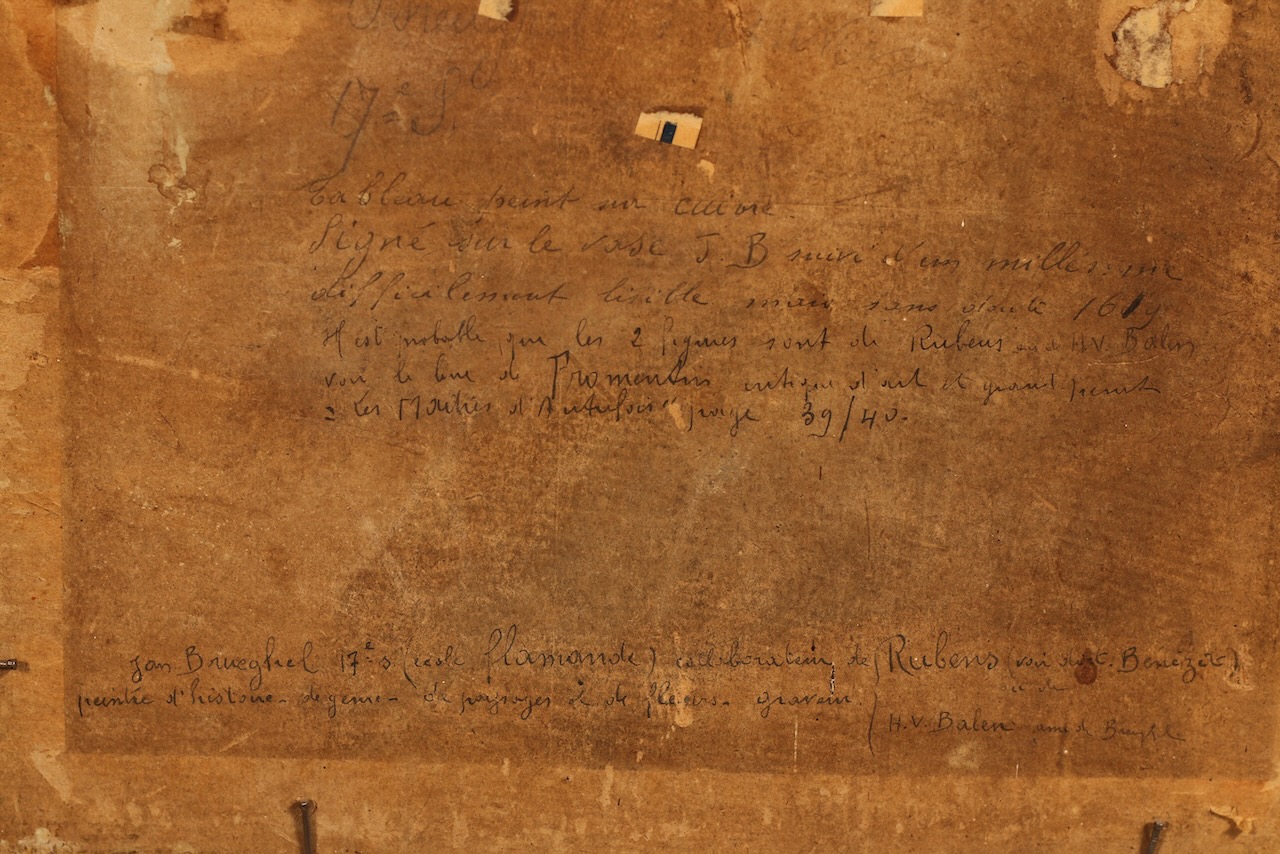 17e S.
Tableau peint sur cuivre.
Signé sur le vase J.B suivi d'un millésime
difficilement lisible mais sans doute 1619
Il est probable que les 2 figures sont de Rubens ou de H.V. Balen
voir le livre de Fromentin critique d'art et grand peintre
"Les Maîtres d'Autrefois" page 39/40.
Jan Brueghel 17e s (école flamande) collaborateur de Rubens (voir dict. Benezit)
ou de
peintre d'histoire - de genre - de paysages et de fleurs - graveur.
H.V. Balen ami de Brueghel